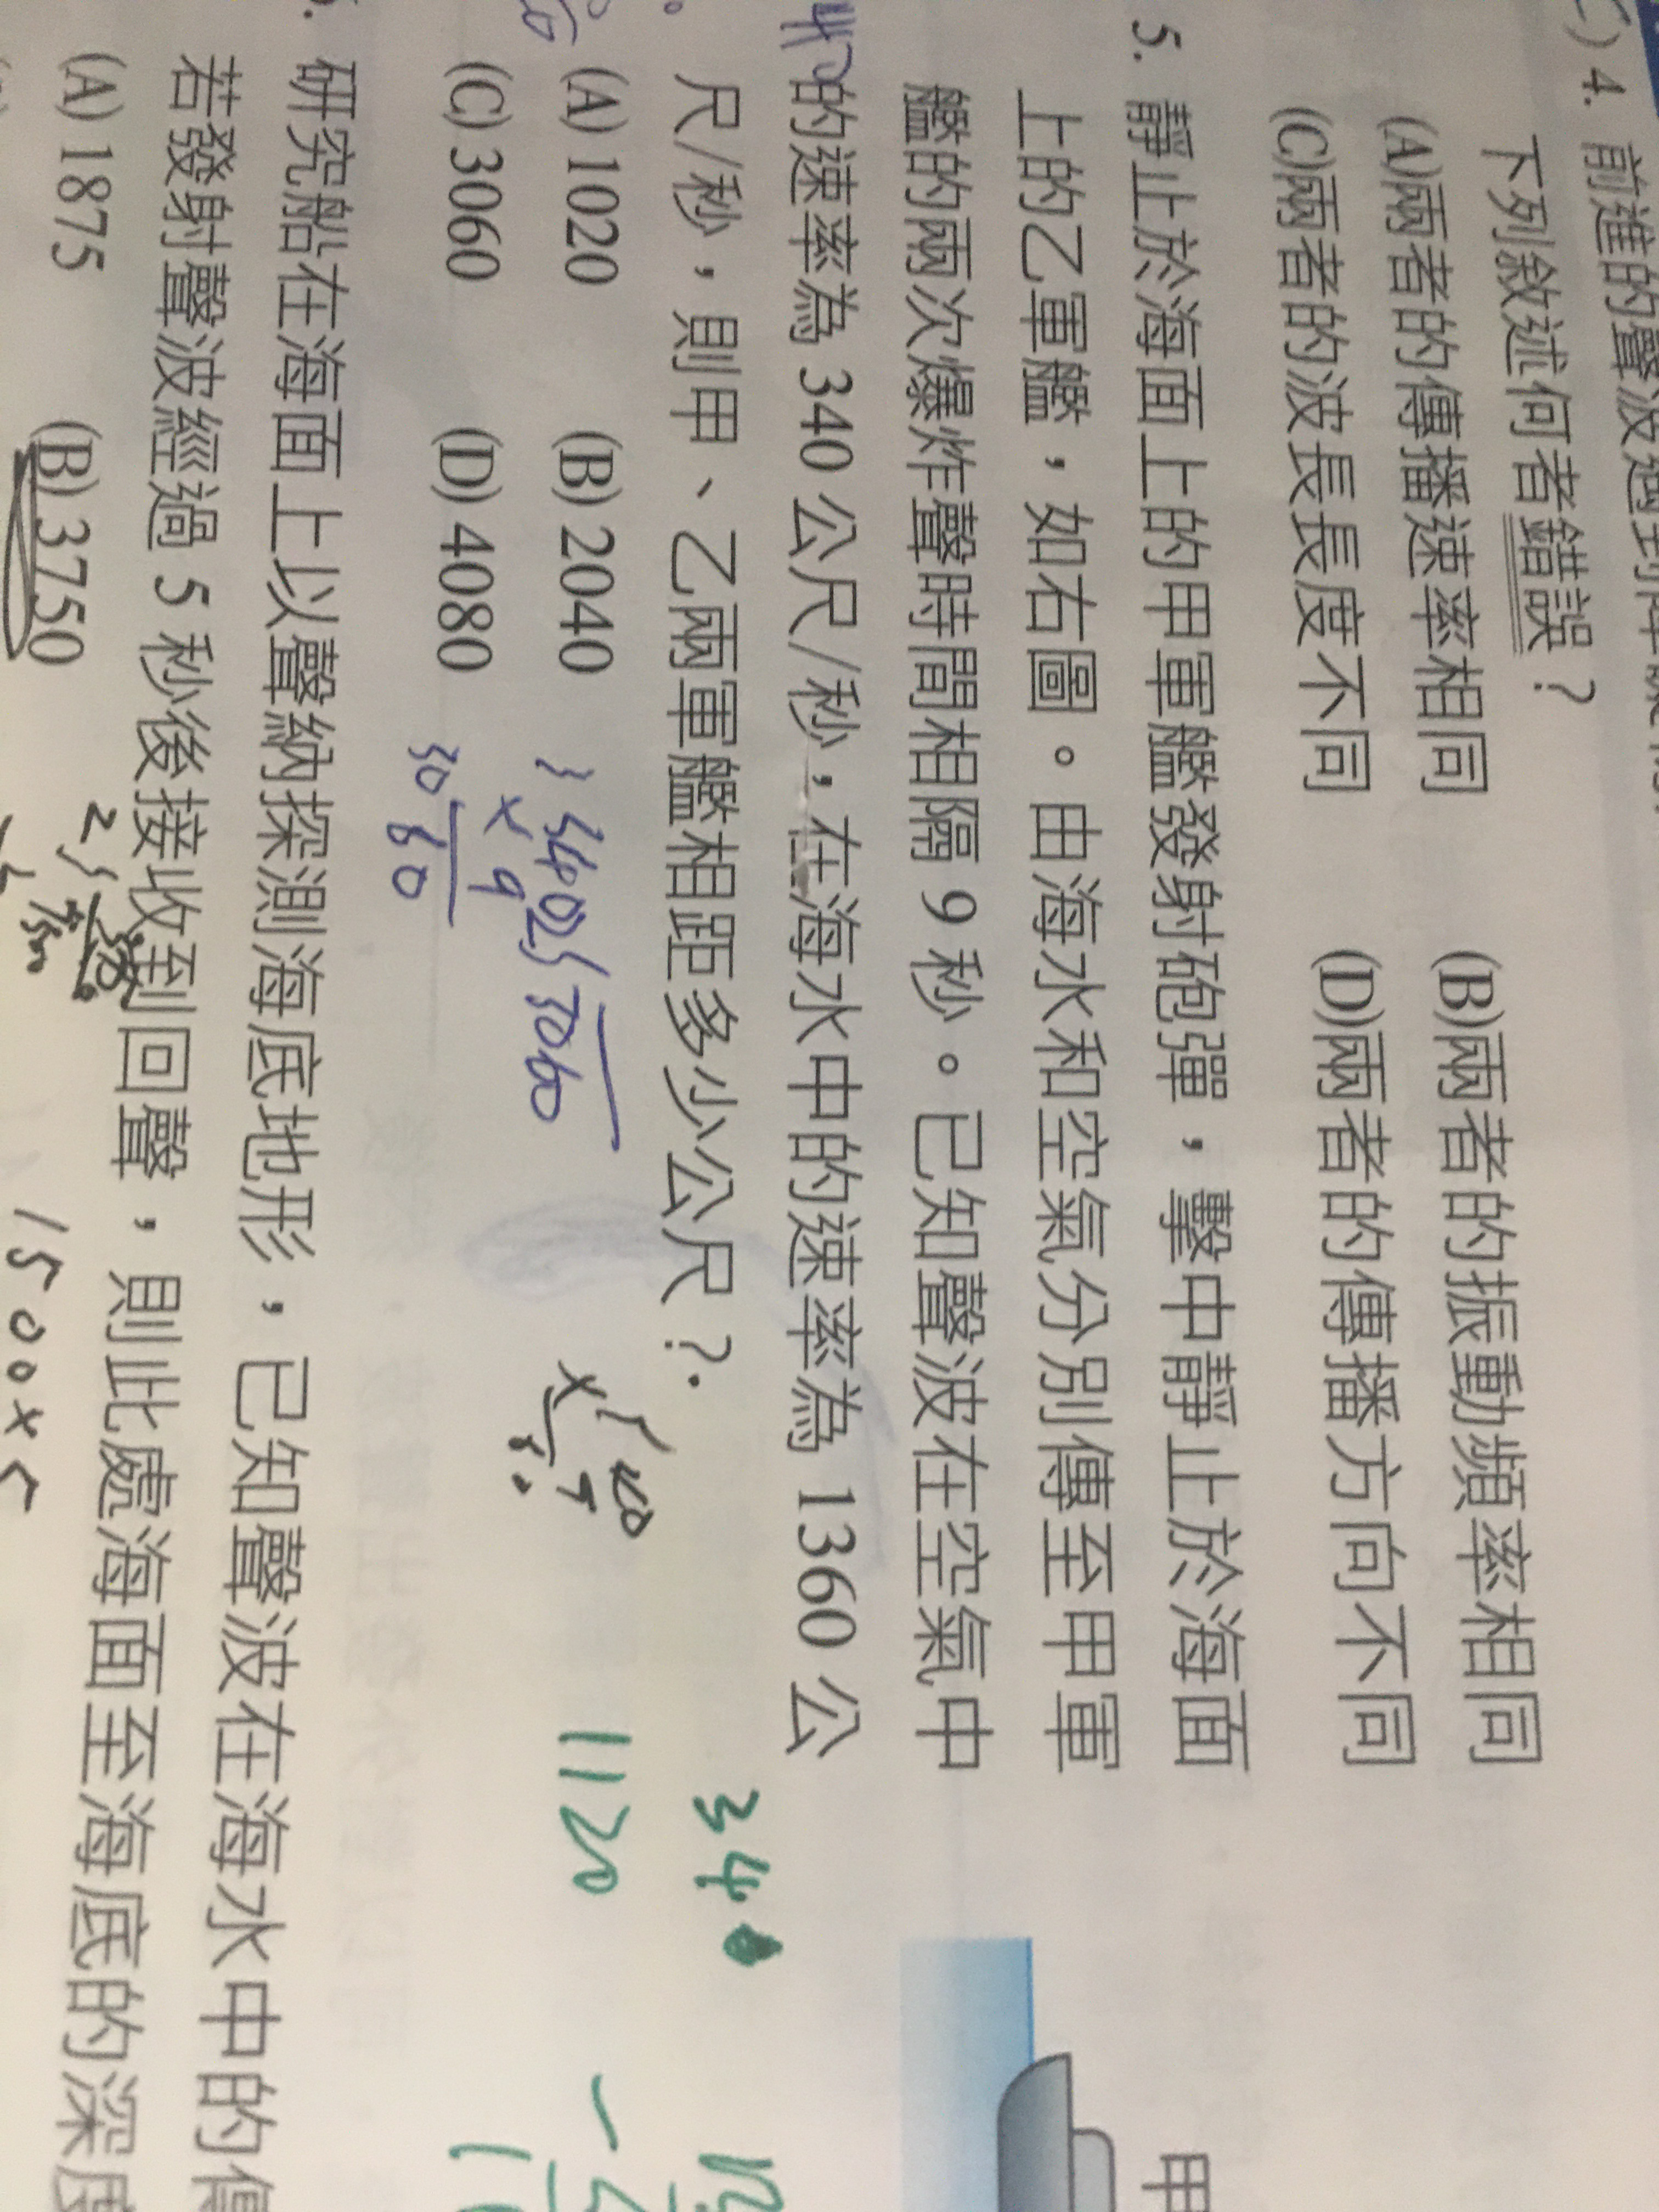 )4. 前進的聲波遇到障礙
下列敘述何者錯誤？
(A)兩者的傳播速率相同 (B)兩者的振動頻率相同
(C)兩者的波長長度不同 (D)兩者的傳播方向不同
5. 靜止於海面上的甲軍艦發射砲彈，擊中靜止於海面
上的乙軍艦，如右圖。由海水和空氣分別傳至甲軍
艦的兩次爆炸聲時間相隔 9 秒。已知聲波在空氣中
的速率為 340 公尺/秒，在海水中的速率為 1360 公
尺/秒，則甲、乙兩軍艦相距多少公尺？
(A) 1020 (B) 2040
(C) 3060 (D) 4080
甲
340
1120
340
x 9
3060
研究船在海面上以聲納探測海底地形，已知聲波在海水中的傳
若發射聲波經過 5 秒後接收到回聲，則此處海面至海底的深度
(A) 1875 (B) 3750
1500x5